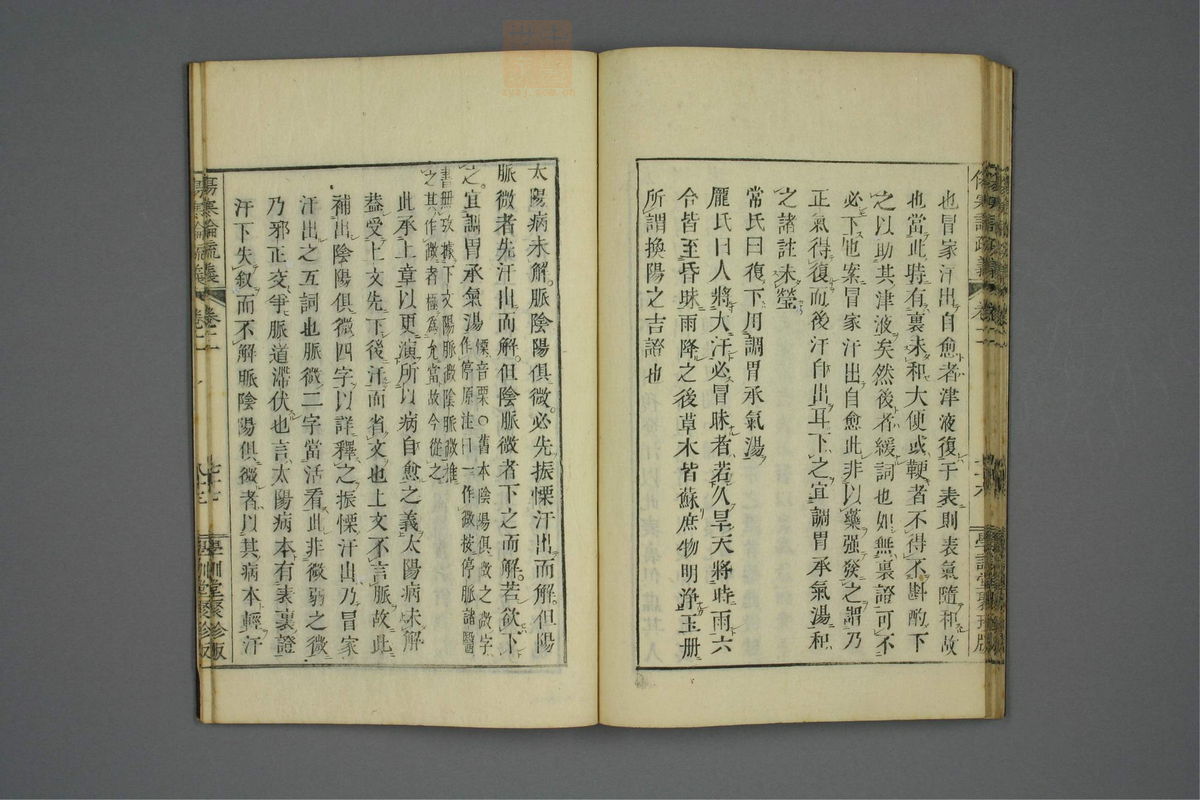 也冒家汗出自愈者津液復于表則表氣隨和故
也當此時有裏未和大便或鞕者不得不斟酌下
之以助其津液矣然後者緩詞也如無裏證可不
必下也案冒家汗出自愈此非以藥强發之謂乃
正氣得復而後汗自出耳下之宜調胃承氣湯和
之諸註未瑩
常氏曰復下用調胃承氣湯
龐氏曰人將大汗必冒昧者若久旱天將時雨六
合皆至昏昧雨降之後草木皆蘇庶物明淨玉册
所謂換陽之吉證也
太陽病未解脈陰陽俱微必先振慄汗出而解但陽
脈微者先汗出而解但陰脈微者下之而解若欲下
之宜調胃承氣湯慄音栗○舊本陰陽俱微之微字
作停原注曰一作微按停脈諸醫
書無攷據下文陽脈微陰脈微推
之其作微者極爲允當故今從之
此承上章以更演所以病自愈之義太陽病未解
蓋受上文先下後汗而省文也上文不言脈故此
補出陰陽俱微四字以詳釋之振慄汗出乃冒家
汗出之互詞也脈微二字當活看此非微弱之微
乃邪正交爭脈道滯伏也言太陽病本有表裏證
汗下失敍而不解脈陰陽俱微者以其病本輕汗
傷寒論疏義
卷二
學訓堂聚珍版